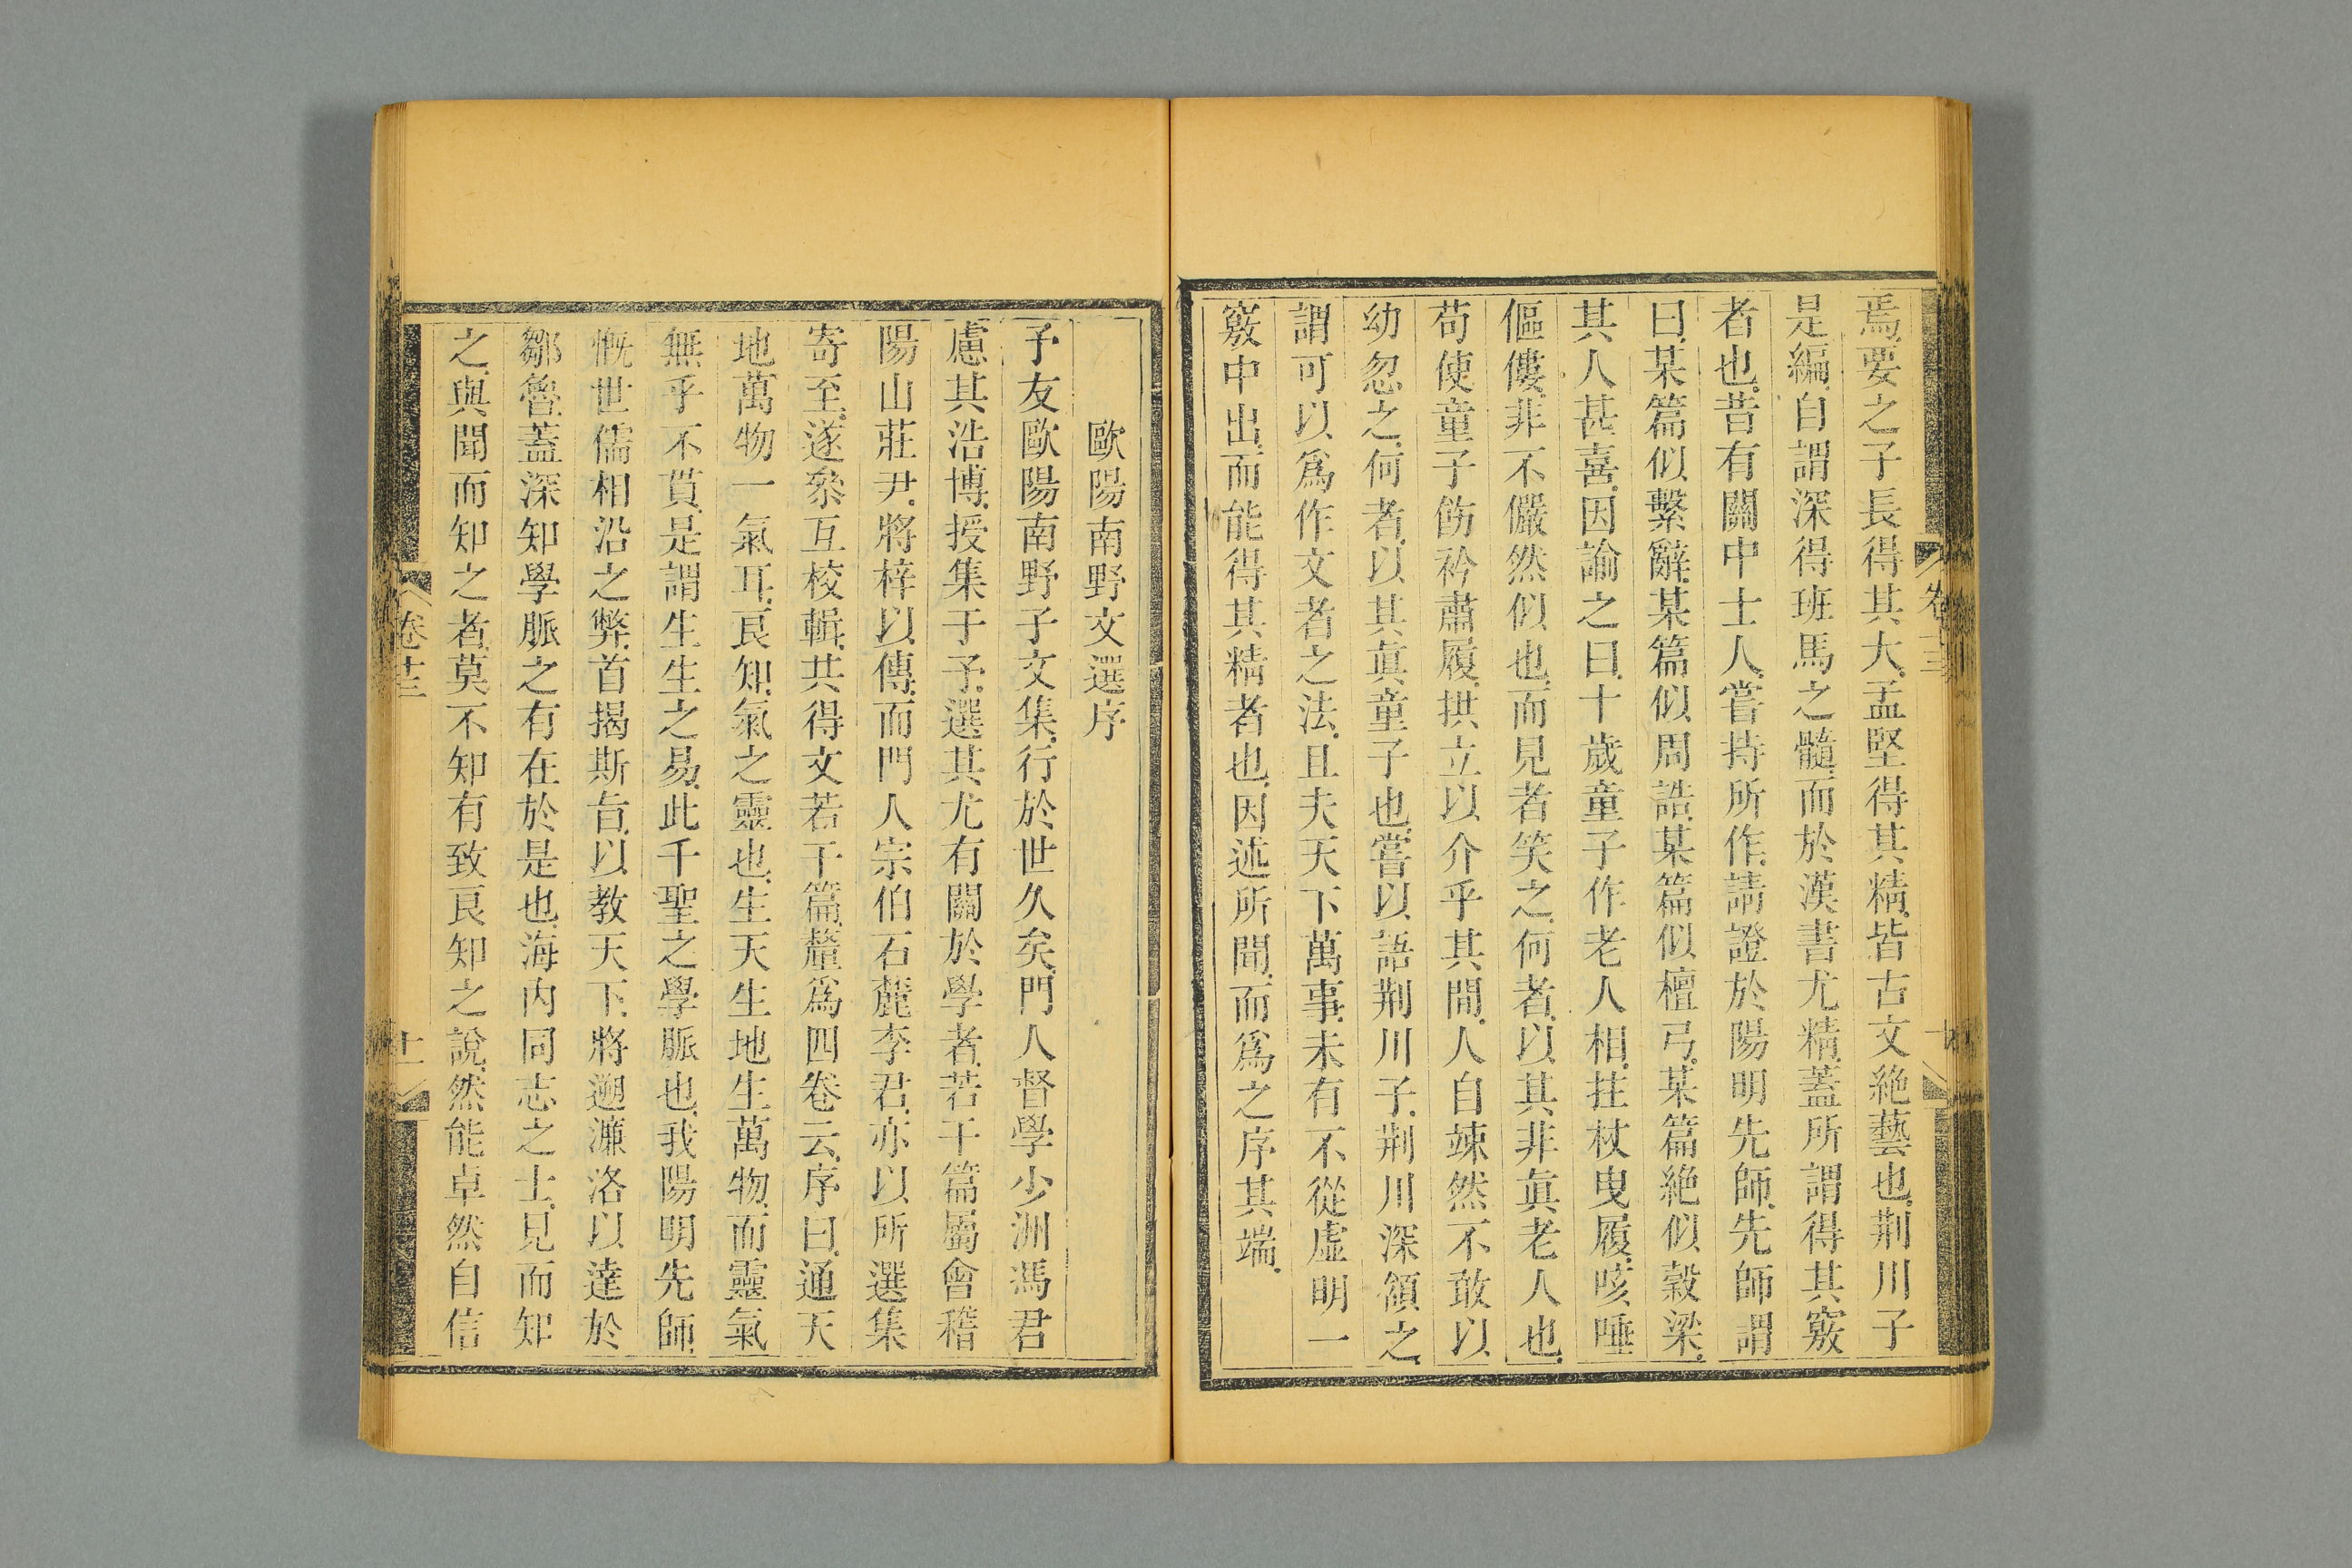 焉要之子長得其大孟堅得其精皆古文絶藝也荆川子
是編自謂深得班馬之髓而於漢書尤精蓋所謂得其竅
者也昔有關中士人嘗持所作請證於陽明先師先師謂
曰某篇似繫辭某篇似周誥某篇似檀弓某篇絶似穀梁
其人甚喜因諭之曰十歲童子作老人相拄杖曳履咳唾
傴僂非不儼然似也而見者笑之何者以其非眞老人也
苟使童子飭衿肅履拱立以介乎其間人自竦然不敢以
幼忽之何者以其眞童子也嘗以語荆川子荆川深領之
謂可以爲作文者之法且夫天下萬事未有不從虛明一
竅中出而能得其精者也因述所聞而爲之序其端
歐陽南野文選序
予友歐陽南野子文集行於世久矣門人督學少洲馮君
慮其浩博授集于予選其尤有關於學者若干篇屬會稽
陽山莊尹將梓以傳而門人宗伯石麓李君亦以所選集
寄至遂叅互校輯共得文若干篇釐爲四卷云序曰通天
地萬物一氣耳良知氣之靈也生天生地生萬物而靈氣
無乎不貫是謂生生之易此千聖之學脈也我陽明先師
慨世儒相沿之弊首揭斯旨以教天下將遡濂洛以達於
鄒魯蓋深知學脈之有在於是也海内同志之士見而知
之與聞而知之者莫不知有致良知之說然能卓然自信
卷十三
十一